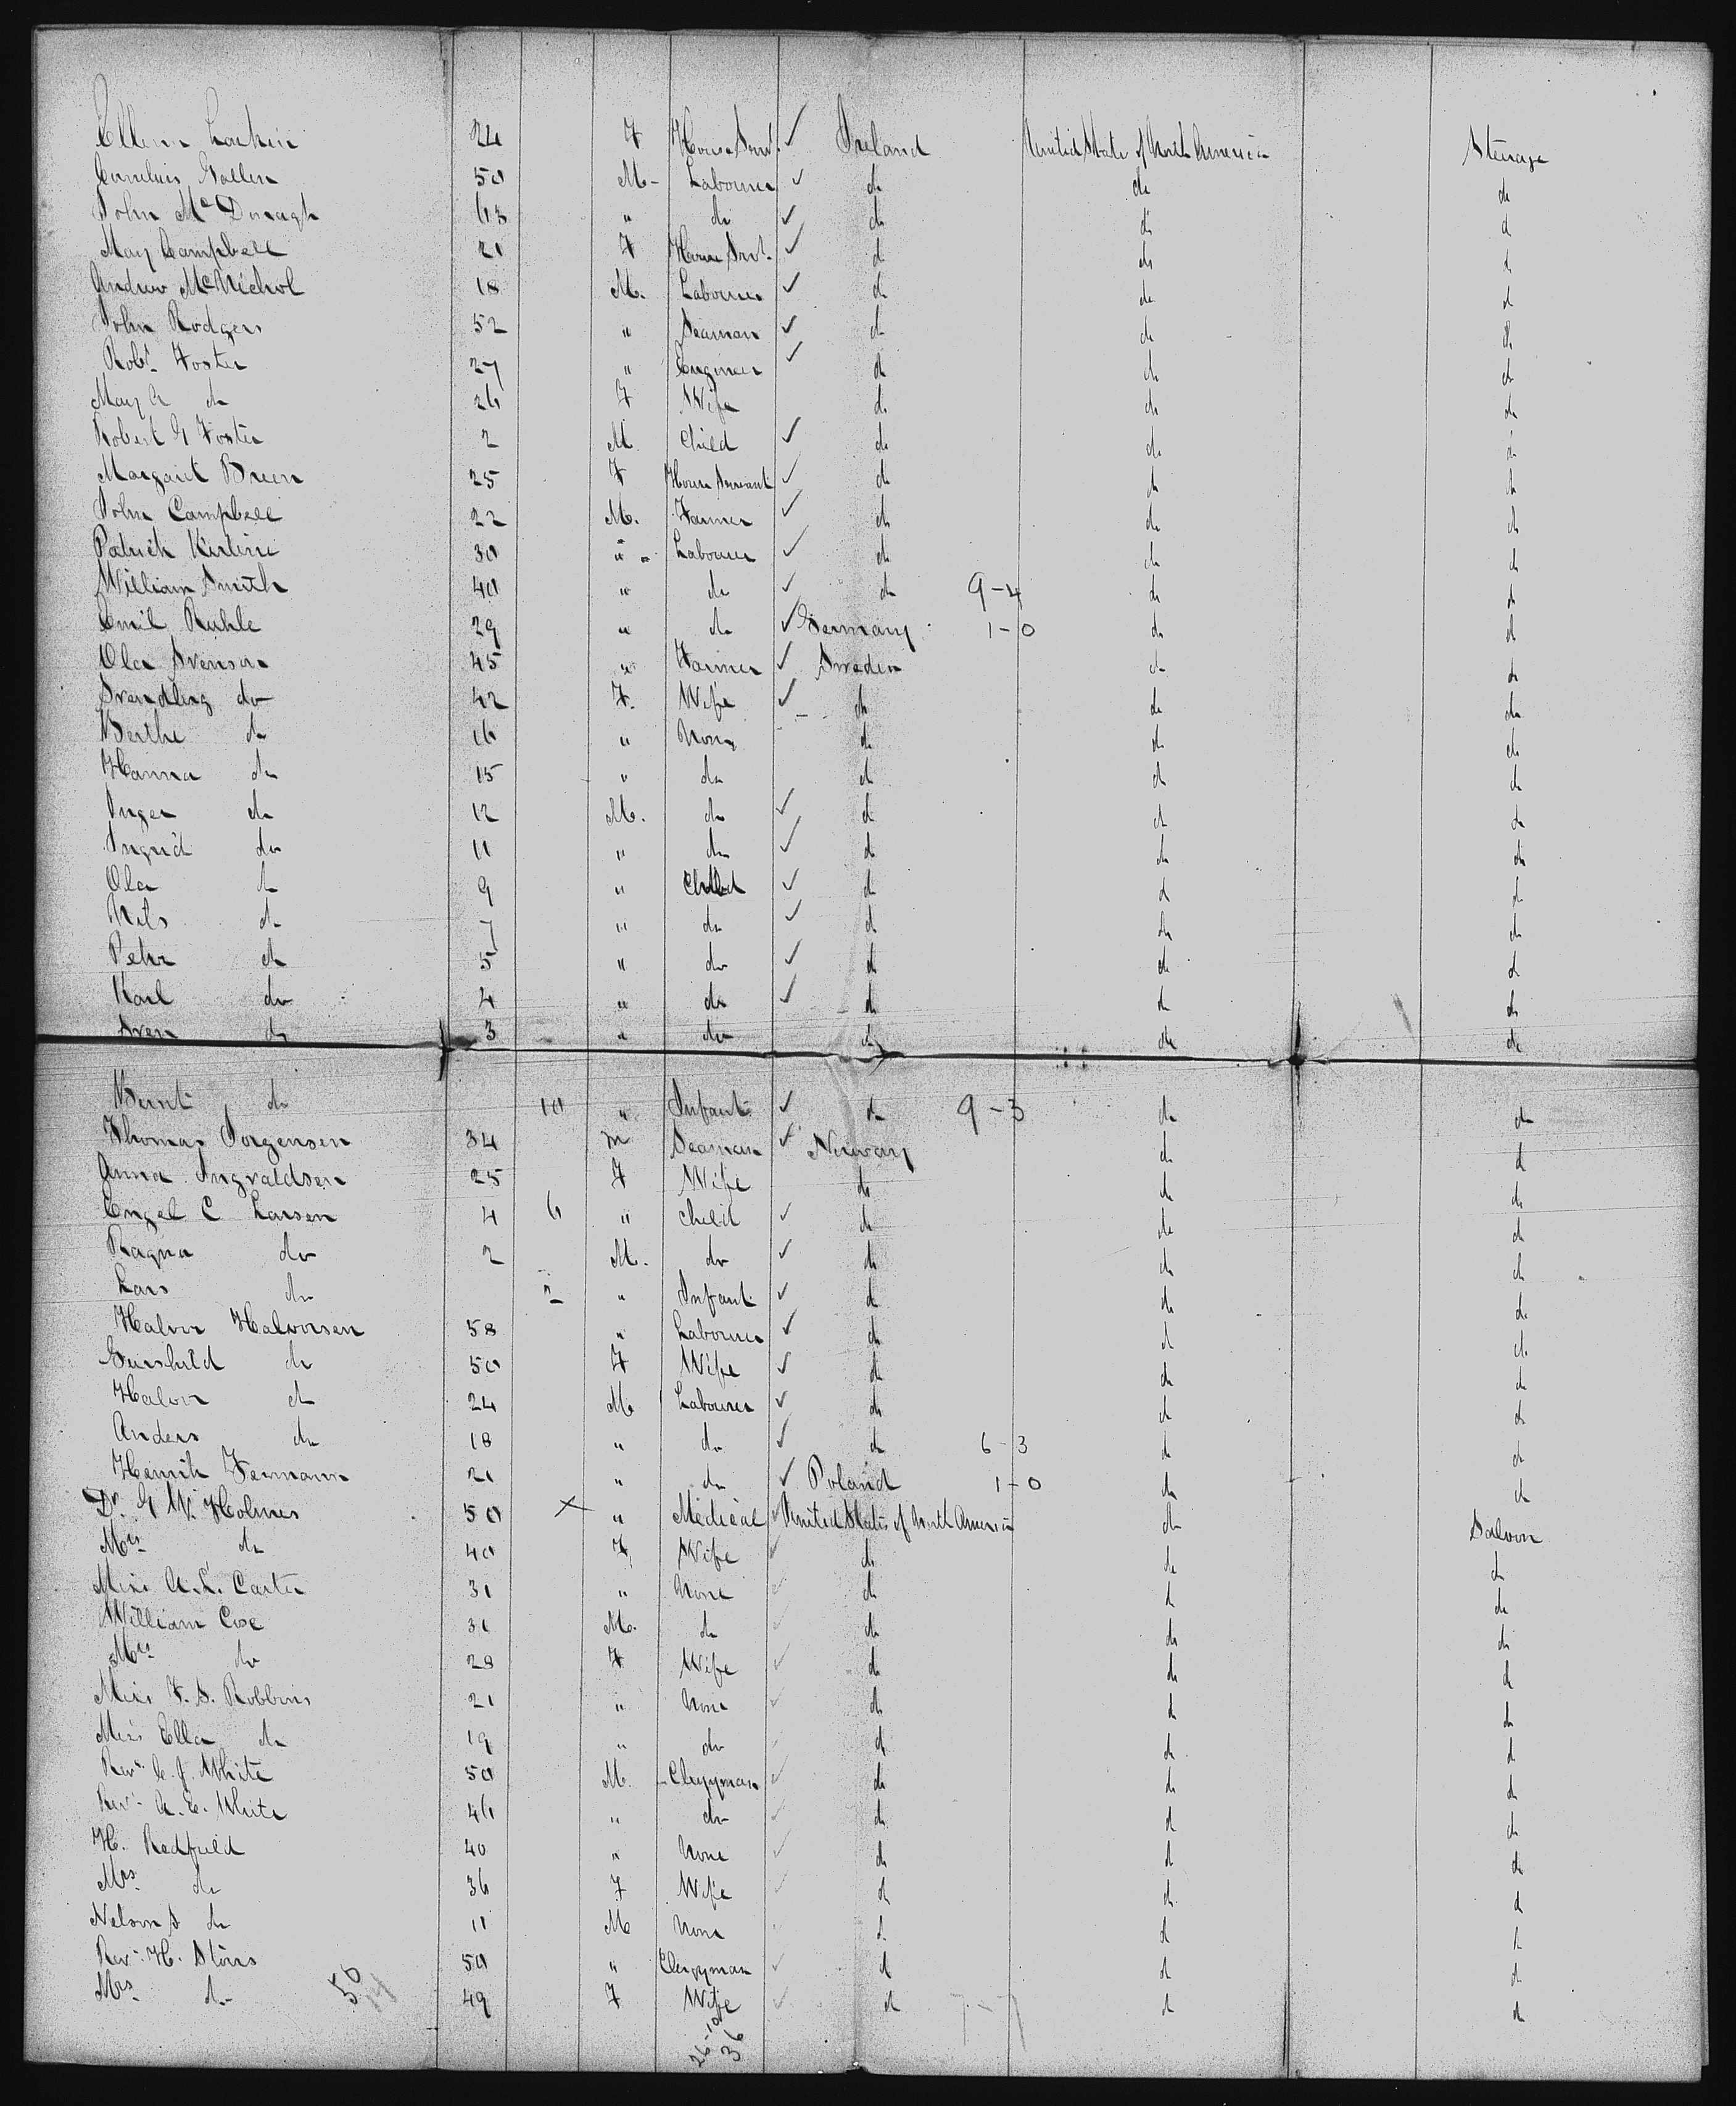 Ellen Larkin 24 F House Servt. ✓ Ireland United State of North America Steerage
Cornelius Gallen 50 M- Labourer ✓ do do do
John McDonagh 63 " do ✓ do do do
Mary Campbell 21 F House Srvt. ✓ do do do
Andrew McNichol 18 M. Labourer ✓ do do do
John Rodgers 52 " Seaman ✓ do do do
Robt. Foster 27 " Engineer ✓ do do do
Mary A do 26 F Wife do do do
Robert G Foster 2 M Child ✓ do do do
Margaret Breen 25 F House Servant ✓ do do do
John Campbell 22 M. Farmer ✓ do do do
Patrick 30 " Labourer ✓ do do do
William Smith 40 " do ✓ do 9-4 do do
Emil Ruhle 29 " do ✓ Germany 1-0 do do
Ola Svenson 45 " Farmer ✓ Sweden do do
do 42 F. Wife ✓ do do do
Berthe do 16 " None do do do
Hanna do 15 " do do do do
Inger do 12 M. do ✓ do do do
Ingrid do 11 " do ✓ do do do
Ola do 9 " Child ✓ do do do
Nils do 7 " do ✓ do do do
Pehr do 5 " do ✓ do do do
Karl do 4 " do ✓ do do do
Sven do 3 " do do do do
Bernt do 10 " Infant ✓ do 9-3 do do
Thomas Jorgensen 34 m Seaman ✓ Norway do do
Anna Ingvaldsen 25 F Wife do do do
Engel C Larsen 4 6 " child ✓ do do do
Ragna do 2 M. do ✓ do do do
Lars do 2 " Infant ✓ do do do
Halvor Halvorsen 58 " Labourer ✓ do do do
do 50 F Wife ✓ do do do
Halvor do 24 M Labourer ✓ do do do
Anders do 18 " do ✓ do 6-3 do do
Henrik 21 " do ✓ Poland 1-0 do do
Dr. G W. Holmes 50 × " Medical ✓ United States of North America do Saloon
Mrs do 40 F. Wife ✓ do do do
Miss A.L. Carter 31 " None ✓ do do do
William Coxe 31 M. do ✓ do do do
Mrs do 28 F Wife ✓ do do do
Miss F. S. Robbins 21 " None ✓ do do do
Miss Ella do 19 " do do do do
Revd. G. J. White 50 M. Clergyman ✓ do do do
Revd. A. E. White 46 " do ✓ do do do
H. Redfield 40 " None ✓ do do do
Mrs do 36 F Wife ✓ do do do
Nelson S do 11 M None do do do
Revd. H. Storrs 50 " Clergyman ✓ do do do
Mrs. do 50 49 F Wife ✓ do 7-7 do do
26-10
36